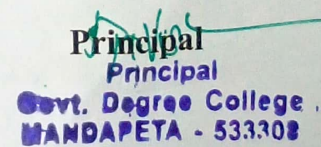 Principal
Principal
Govt. Degree College.
MANDAPETA - 533308